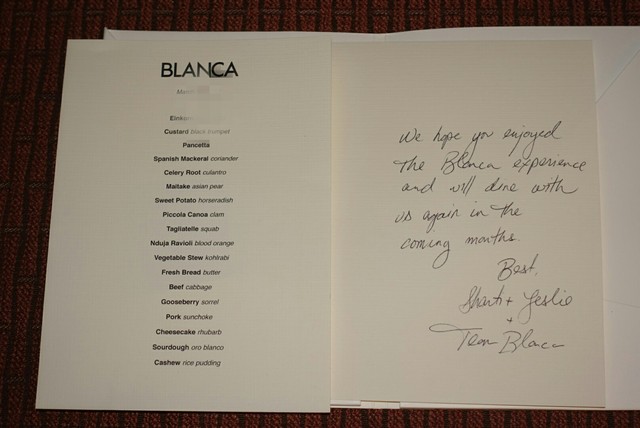 BLANCA
Custard black trumpet
Pancetta
Spanish Mackerel coriander
Celery Root culantro
Maitake asian pear
Sweet Potato horseradish
Piccola Canoa clam
Tagliatelle squab
Nduja Ravioli blood orange
Vegetable Stew kohlrabi
Fresh Bread butter
Beef cabbage
Gooseberry sorrel
Pork sunchoke
Cheesecake rhubarb
Sourdough oro blanco
Cashew rice pudding
We hope you enjoyed
the Blanca experience
and will dine with
us again in the
coming months.
Best,
+ Leslie
+
Team Blanca